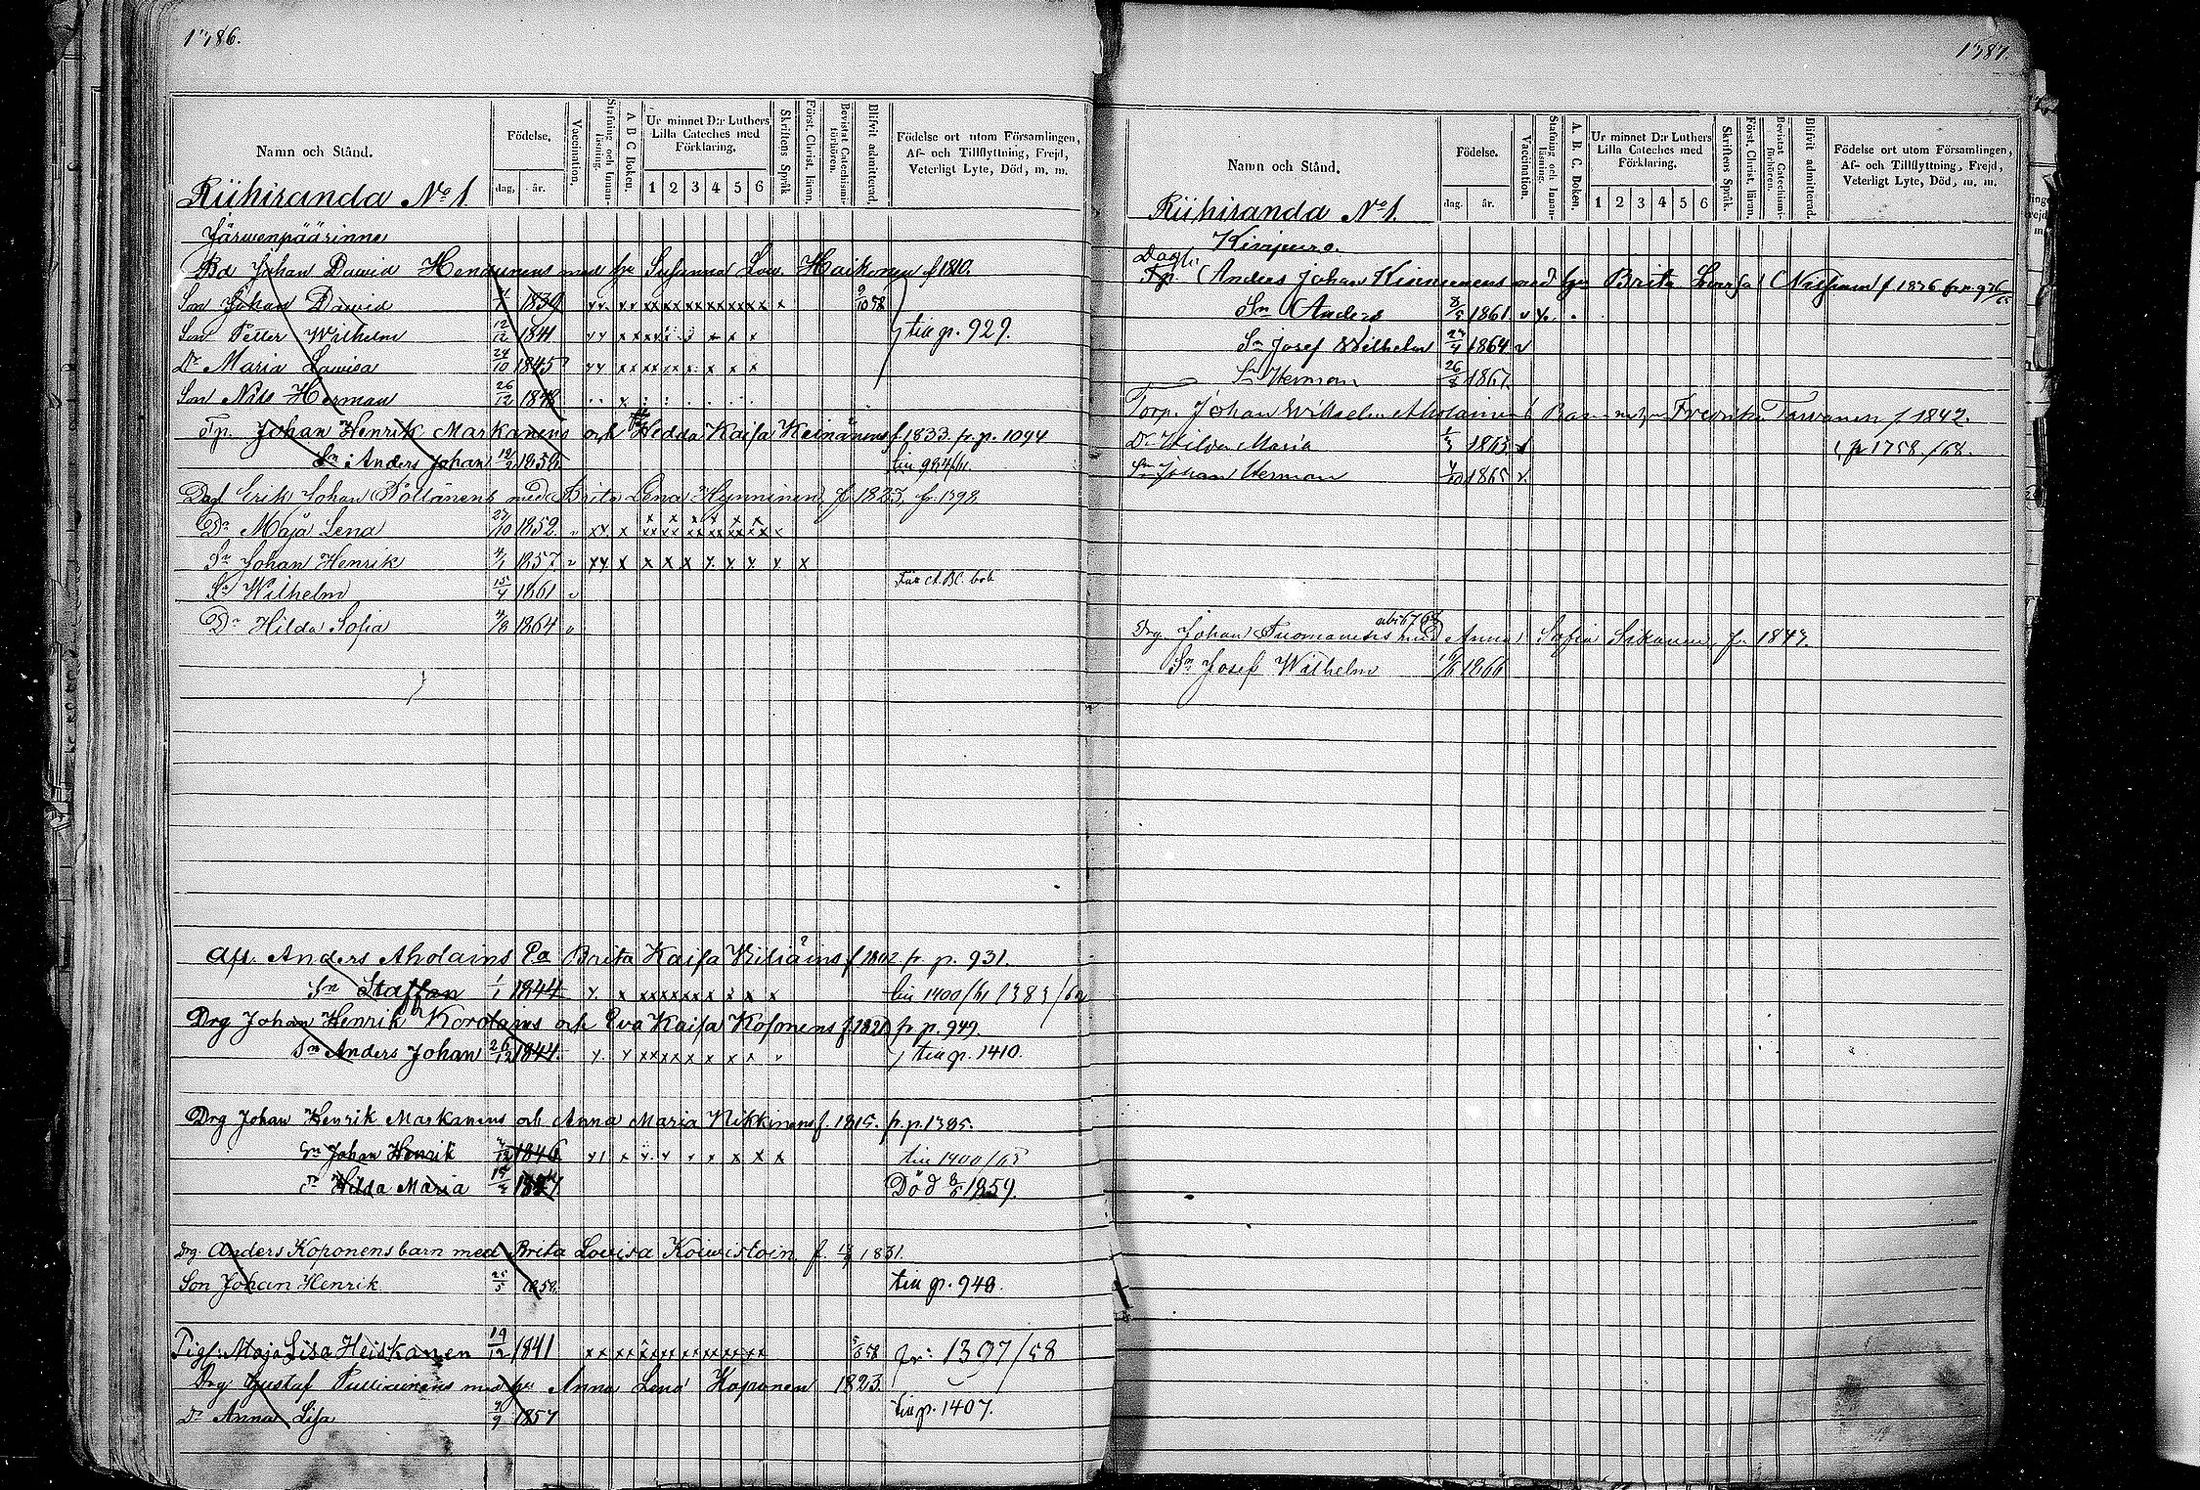 1386.
Namn och Stånd.
Födelse, dag, år.
Vaccination.
Stafning och Innanläsning.
A B C Boken.
Ur minnet D:r Luthers Lilla Cateches med Förklaring.
1 2 3 4 5 6
Skriftens Språk
Först. Christ. läran.
Bevistat Catechismiförhören.
Blifvit admitterad.
Födelse ort utom Församlingen, Af- och Tillflyttning, Frejd, Veterligt Lyte, Död, m. m.
Riihiranda No 1.
Järwenpäärinne
Bd Johan Dawid med hu Susanna Lov. Haikonen f 1810.
Son Johan Dawid 1839 9/10 58
Son Petter Wilhelm 12/12 1841 till p. 929.
Dr Maria Lowisa 24/10 1845
Son Nils Herman 26/12 1848
Tp. Johan Henrik Markanens och Hedda Kaisa Keinänens f. 1833. fr. p. 1094
Sn Anders Johan 12/2 1858 till 984/61
Dag Erik Johan Pöllänens med Brita Lena Hynninen f 1823, fr. 1398
Dr Maja Lena 27/10 1852
Sn Johan Henrik 4/1 1857
Sn Wilhelm 15/4 1861 Fått A.B.C. bok
Dr Hilda Sofia 4/8 1864
Afl. Anders Aholains Ea Brita Kaisa f 1802 fr p. 931.
Sn Staffan 1/1 1844 till 1400/61 1383/62
Drg Johan Henrik Korolains och Eva Kaisa Kosonens f 1821 fr p. 949.
Sn Anders Johan 26/12 1844 till p. 1410.
Drg Johan Henrik Markanens och Anna Maria Nikkinens f. 1815. fr. p. 1385.
Sn Johan Henrik 1846 till 1400/65
Dr Hilda Maria 1857 Död 8/5 1859.
Drg. Anders Koponens barn med Brita Lovisa Koiwistoin f. 1831.
Son Johan Henrik 25/5 1858 till p. 940.
Pig. Maja Lisa Heiskanen 19/12 1841 5/6 58 fr: 1397/58
Drg Gustaf med hu Anna Lena Koponen 1823.
Dr Anna Lisa 1857 till p. 1407.
1387.
Namn och Stånd.
Födelse. dag. år.
Vaccination.
Stafning och Innanläsning.
A. B. C. Boken.
Ur minnet D:r Luthers Lilla Cateches med Förklaring.
1 2 3 4 5 6
Skriftens Språk.
Först. Christ. läran.
Bevistat Catechismiförhören.
Blifvit admitterad.
Födelse ort utom Församlingen, Af- och Tillflyttning, Frejd, Veterligt Lyte, Död, m. m.
Riihiranda No 1.
Kinipuro.
Dagk.
Tp. Anders Johan Kinnunens med hu Brita Lovisa f. 1836 fr p. 976/65
Sn Anders 8/5 1861
Sn Josef Wilhelm 1864
Sn Herman 26/8 1867
Torp. Johan Wilhelm Aholainens Barn m. hu Fredrika Tarvanen f. 1842.
Dr Hilda Maria 1863 fr 1758/68.
Sn Johan Herman 1865
Drg. Johan Tuomainens med Anna Sofia Sikanen f. 1843.
Sn Josef Wilhelm 1866